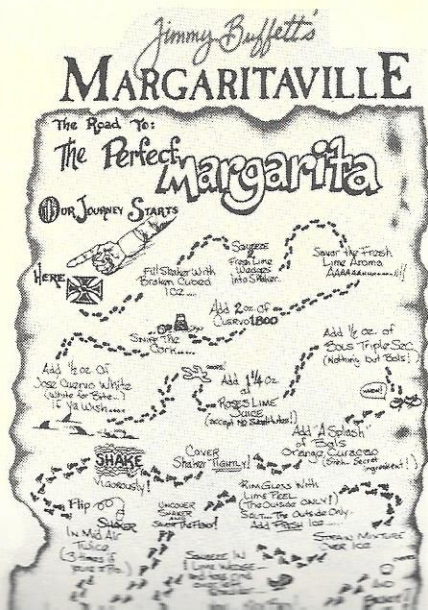 Jimmy Buffett's
MARGARITAVILLE
The Road To:
The Perfect
Margarita
Our Journey Starts
Here
Fill Shaker With
Broken Cubed
Ice....
Squeeze
Fresh Lime
Wedges
into Shaker...
Savor the Fresh
Lime Aroma
Add 2 oz of
Cuervo 1800
Sniff The
Cork....
Add ½ oz Of
Jose Cuervo White
(White for Bite..)
If Ya Wish....
Add 1¼ oz
of
Roses Lime
Juice
(accept No Substitutes!)
Add ½ oz. of
Bols Triple Sec
(Nothing but Bols!)
Add "A Splash"
of Bols
Orange Curacao
(Shhh.. Secret
ingredient!)
Cover
Shaker Tightly!
SHAKE
Vigorously!
Flip
Shaker
In Mid Air
Twice
Uncover
Shaker
and
Rim Glass With
Lime Peel
(The Outside ONLY!)
Salt... The Outside Only..
Add Fresh Ice....
Strain Mixture
Over Ice
Squeeze In
1 Lime Wedge
AND